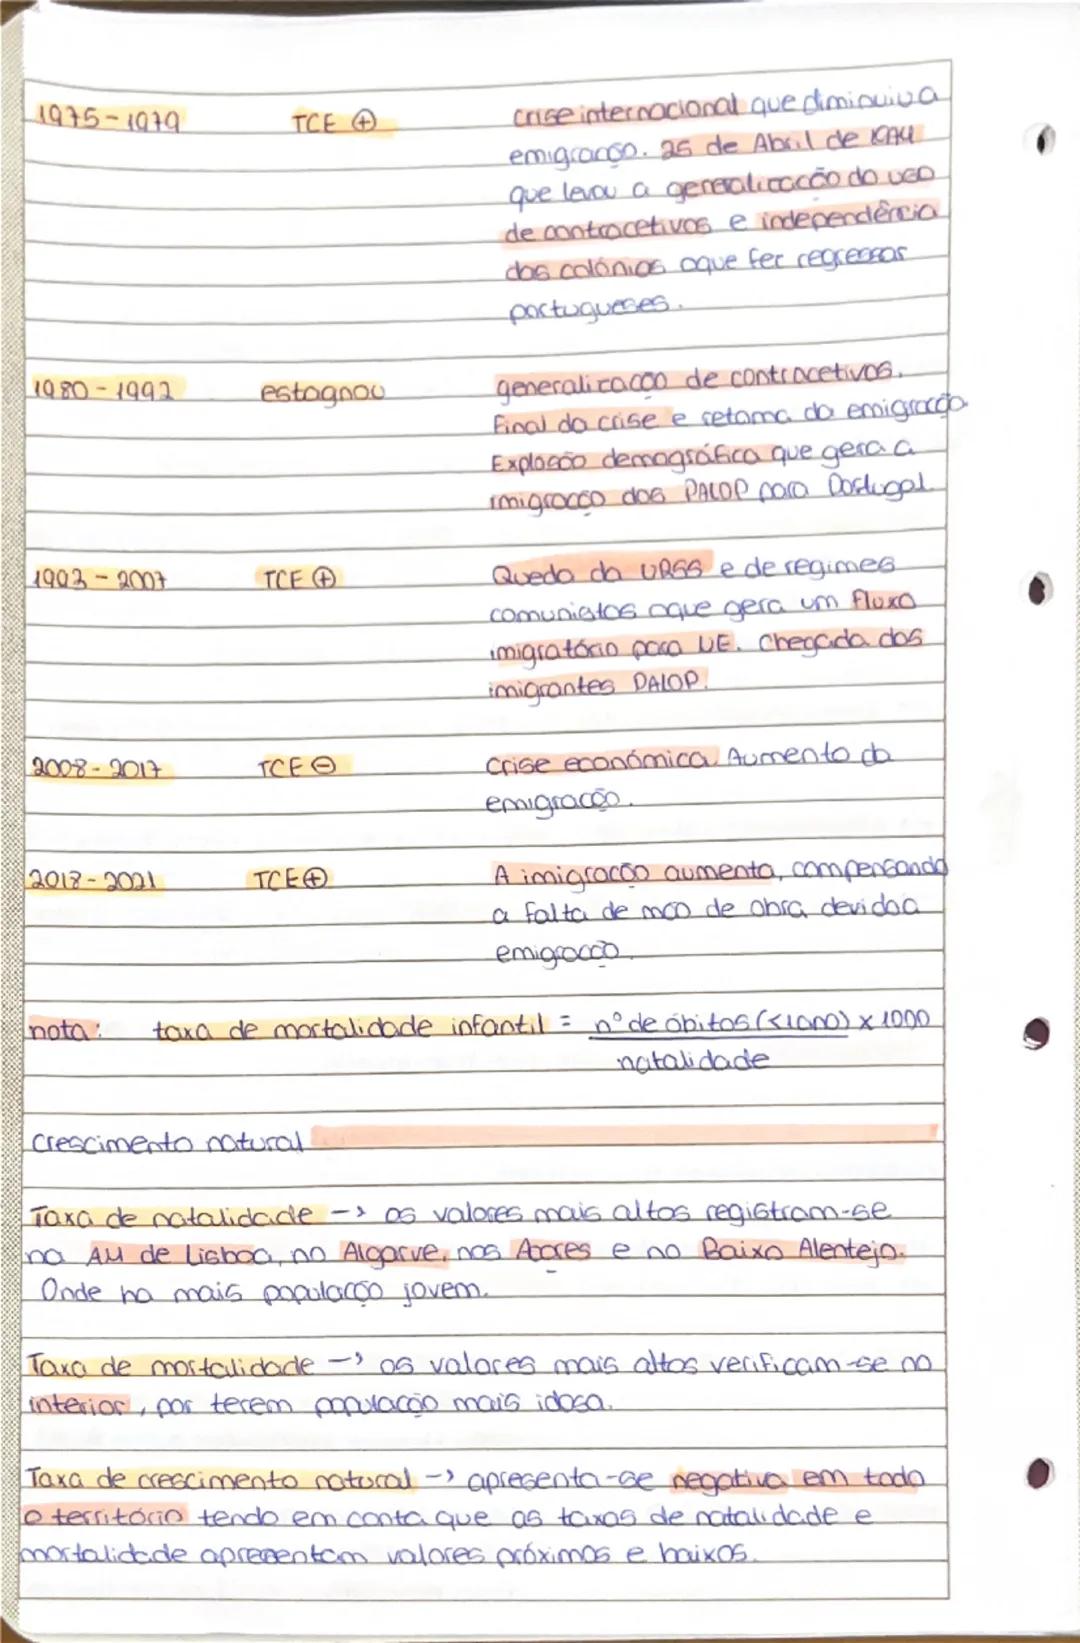 1975-1979 TCE ⊕ crise internacional que diminuiu a
emigração. 25 de Abril de 1974
que levou a generalização do uso
de contracetivos e independência
das colónias oque fez regressar
portugueses.
1980-1992 estagnou generalização de contracetivos.
Final da crise e retoma da emigração
Explosão demográfica que gera a
imigração dos PALOP para Portugal.
1993-2007 TCE ⊕ Queda da URSS e de regimes
comunistas oque gera um fluxo
imigratório para UE. Chegada dos
imigrantes PALOP.
2008-2017 TCE ⊖ Crise económica. Aumento da
emigração.
2018-2021 TCE ⊕ A imigração aumenta, compensando
a falta de mão de obra devido a
emigração.
nota: taxa de mortalidade infantil = nº de óbitos (<1ano) x 1000
natalidade
crescimento natural
Taxa de natalidade -> os valores mais altos registram-se
na AM de Lisboa, no Algarve, nos Açores e no Baixo Alentejo.
Onde ha mais população jovem.
Taxa de mortalidade -> os valores mais altos verificam-se no
interior, por terem população mais idosa.
Taxa de crescimento natural -> apresenta-se negativa em todo
o território tendo em conta que as taxas de natalidade e
mortalidade apresentam valores próximos e baixos.